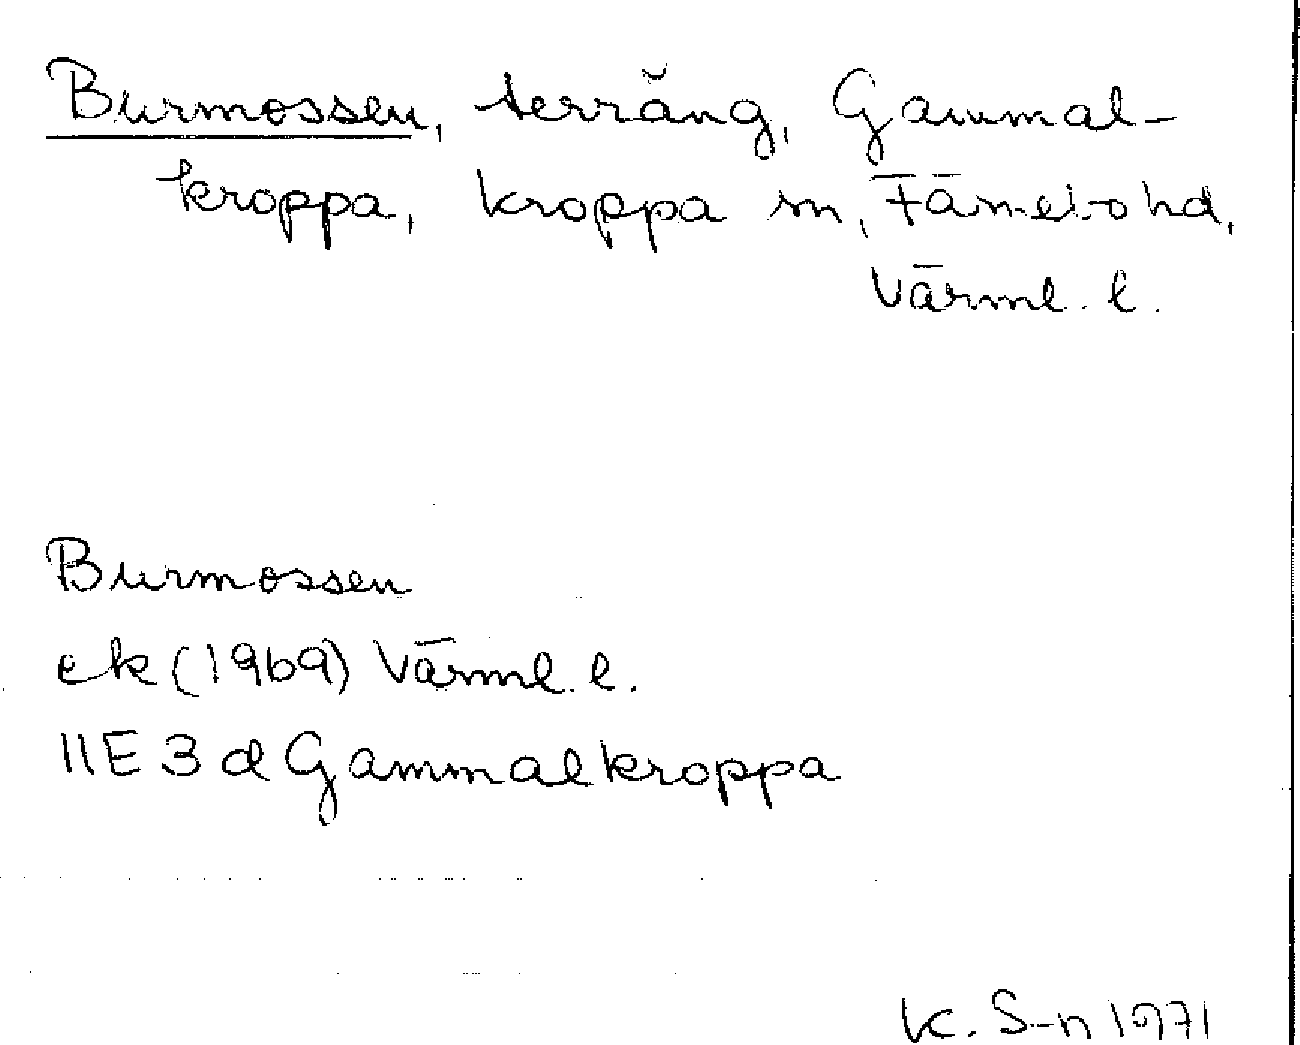 Burmossen, terräng, Gammal-
kroppa, Kroppa sn, Färnebo hd,
Värml. l.
Burmossen
ek (1969) Värml. l.
11E 3 d Gammalkroppa
K. S-n 1971